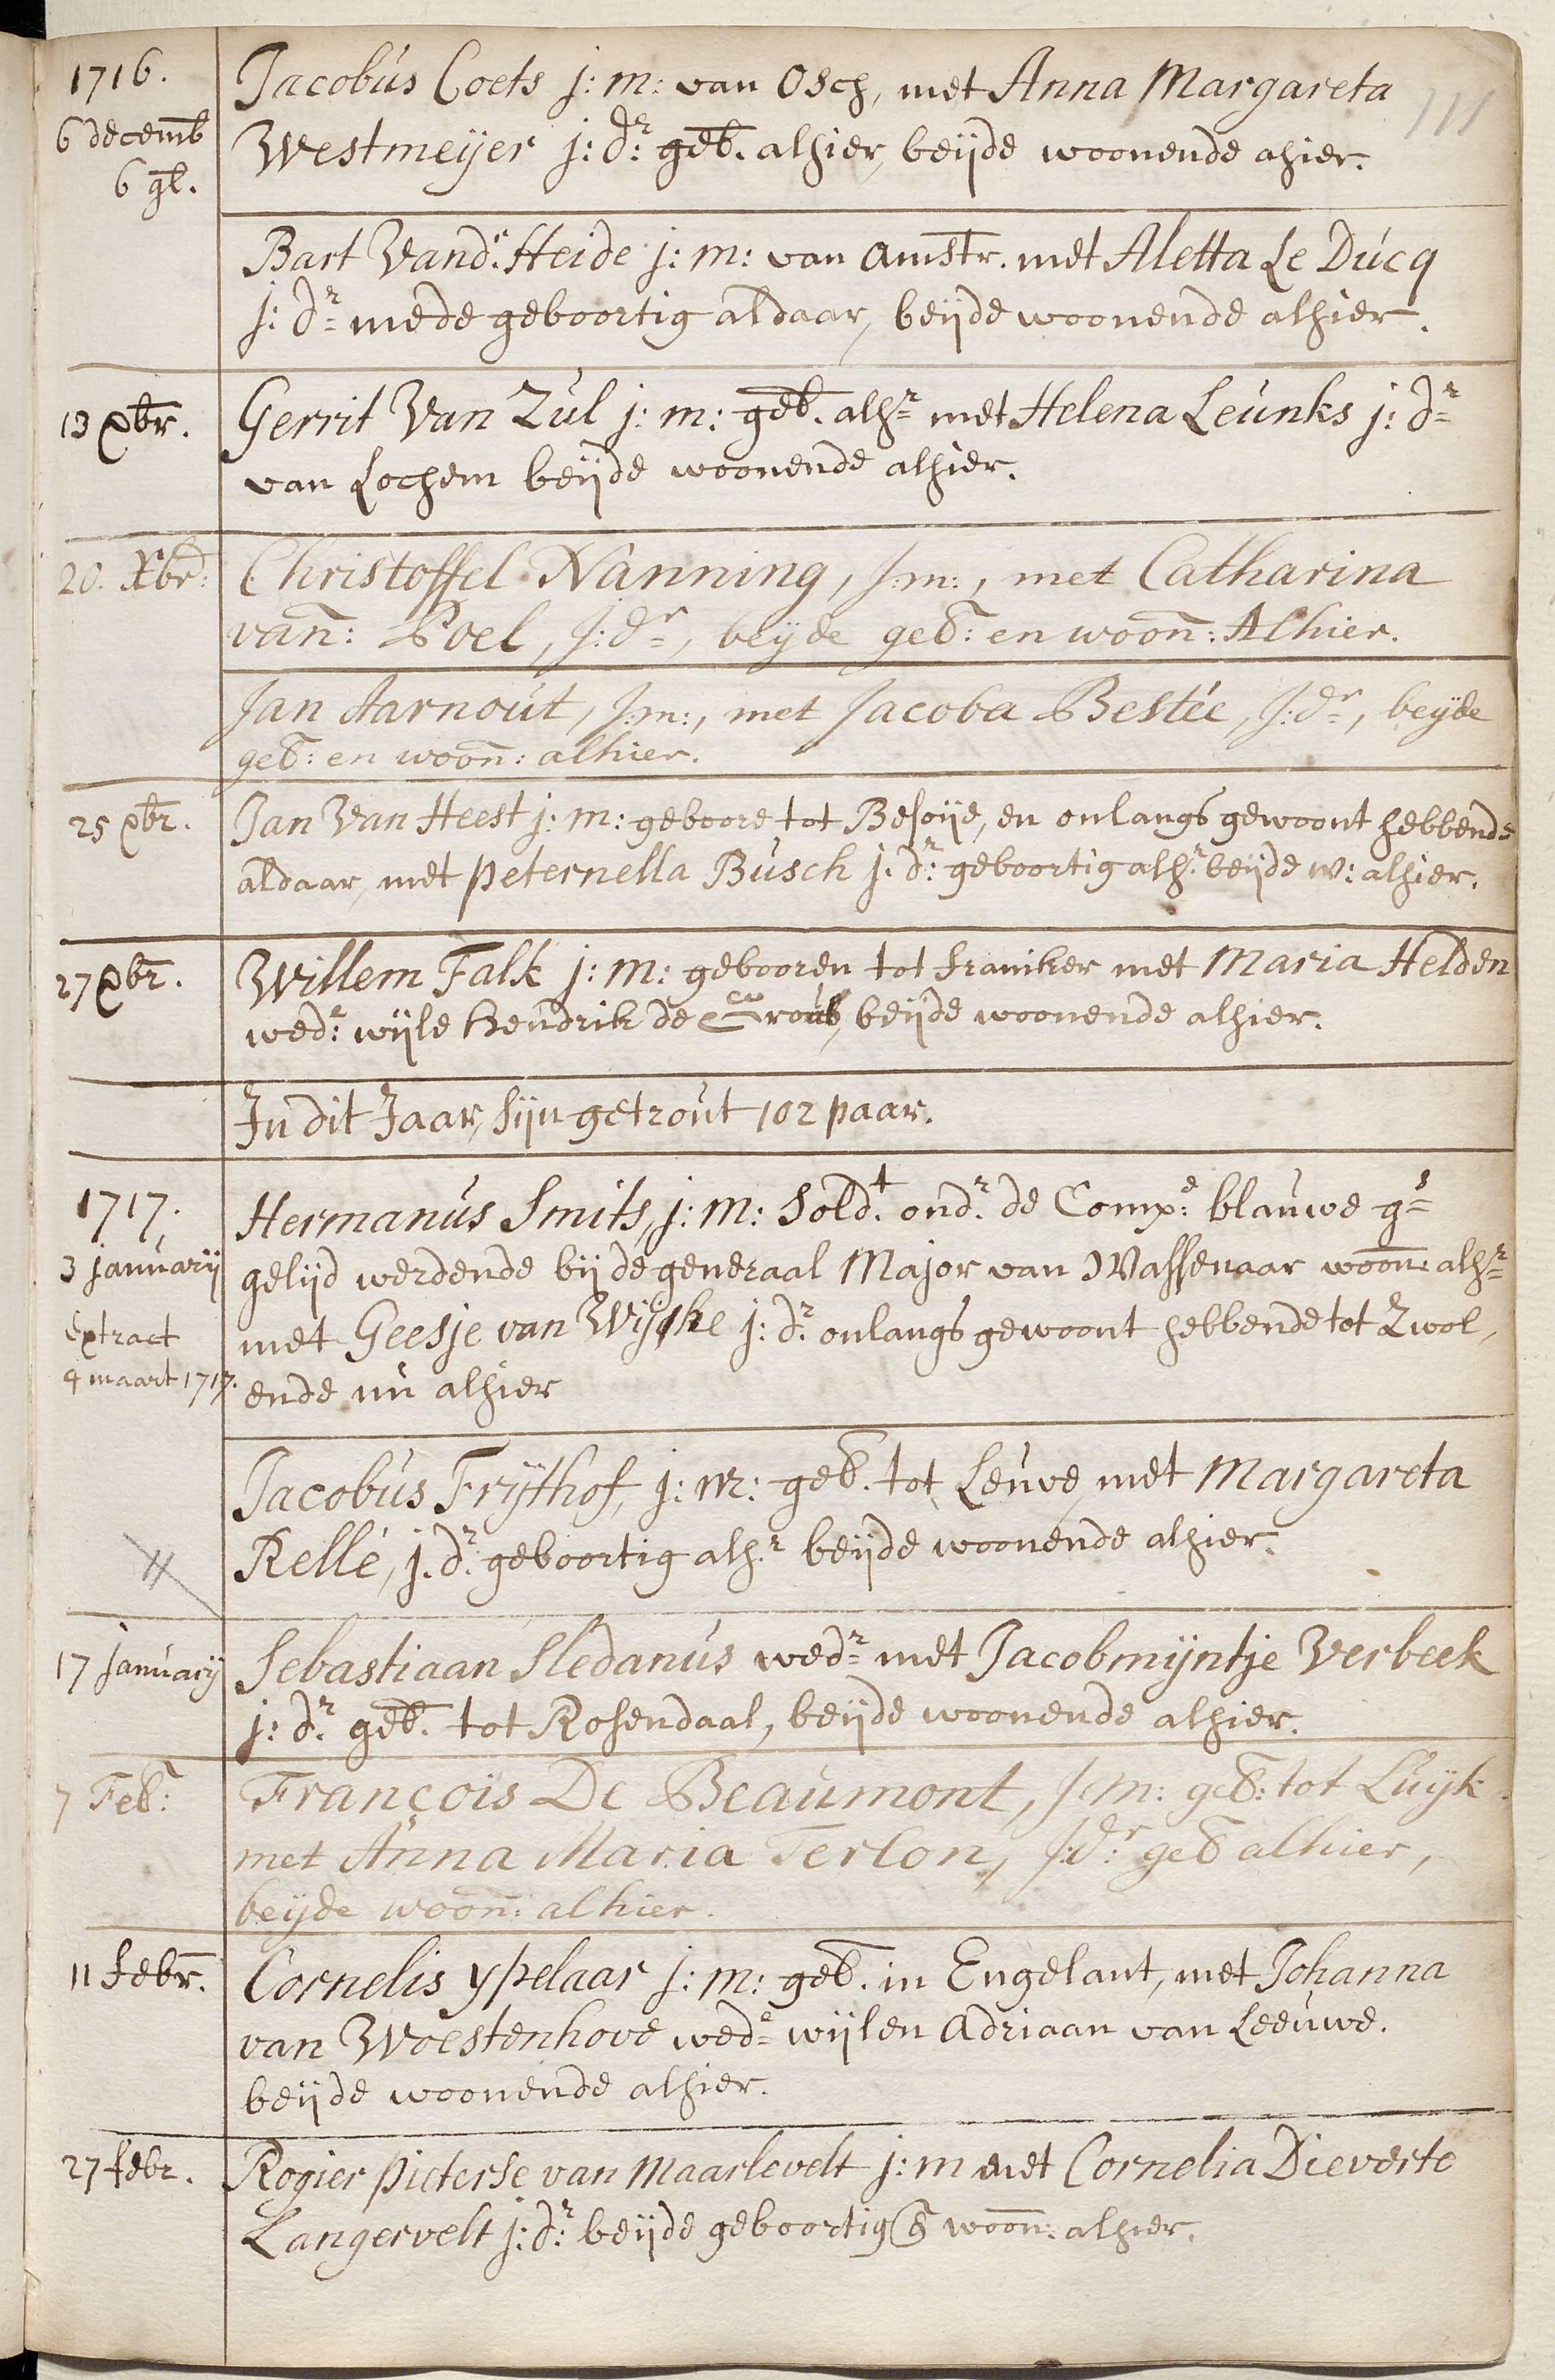 111
1716.
6 decemb
6 gl.
Jacobus Coets j: m: van Osch, met Anna Margareta
Westmeijer j: dr: geb. alhier, beijde woonende ahier.
Bart Vandr. Heide j: m: van Amstr. met Aletta Le Ducq
j: dr= mede geboortig aldaar, beijde woonende alhier.
13 xbr.
Gerrit Van Zul j: m: geb. alhr= met Helena Leunks j: dr=
van Lochem beijde woonende alhier.
20. Xbr:
Christoffel Nanning, J:m:, met Catharina
van: Poel, J:dr=, beyde geb: en woon: Alhier.
Jan Aarnout, J:m:, met Jacoba Bestée, J:dr=, beyde
geb: en woon: alhier.
25 xbr.
Jan Van Heest j: m: geboore tot Besoije, en onlangs gewoont hebbende
aldaar, met Peternella Busch j. dr: geboortig alhr: beijde w: alhier.
27 xbr.
Willem Falk j: m: gebooren tot franiker met Maria Helden
wede: wijle Hendrik de beijde woonende alhier.
In dit Jaar, sijn getrout 102 paar.
1717.
3 januarij
Extract
4 maart 1717.
Hermanus Smits, j: m: Soldt. ondr. de Compe: blauwe gs=
gelijd werdende bij de generaal Major van Wassenaar woon: alhr=
met Geesje van Wijske j: dr. onlangs gewoont hebbende tot Zwol,
ende nu alhier
Jacobus Frijthof, j: m: geb. tot Leuve, met Margareta
Rellé, j. dr. geboortig alhr. beijde woonende alhier.
17 januarij
Sebastiaan Sledanus wedr= met Jacobmijntje Verbeek
j: dr. geb. tot Rosendaal, beijde woonende alhier.
7 Feb:
François De Beaumont, J:m: geb: tot Luyk
met Anna Maria Terlon, J:dr: geb alhier,
beijde woon: alhier.
11 febr.
Cornelis ypelaar j: m: geb. in Engelant, met Johanna
van Woestenhove wede= wijlen Adriaan van Leeuwe.
beijde woonende alhier.
27 febr.
Rogier Pieterse van Maarlevelt j: m met Cornelia Dieverte
Langervelt j: dr: beijde geboortig & woon: alhier.